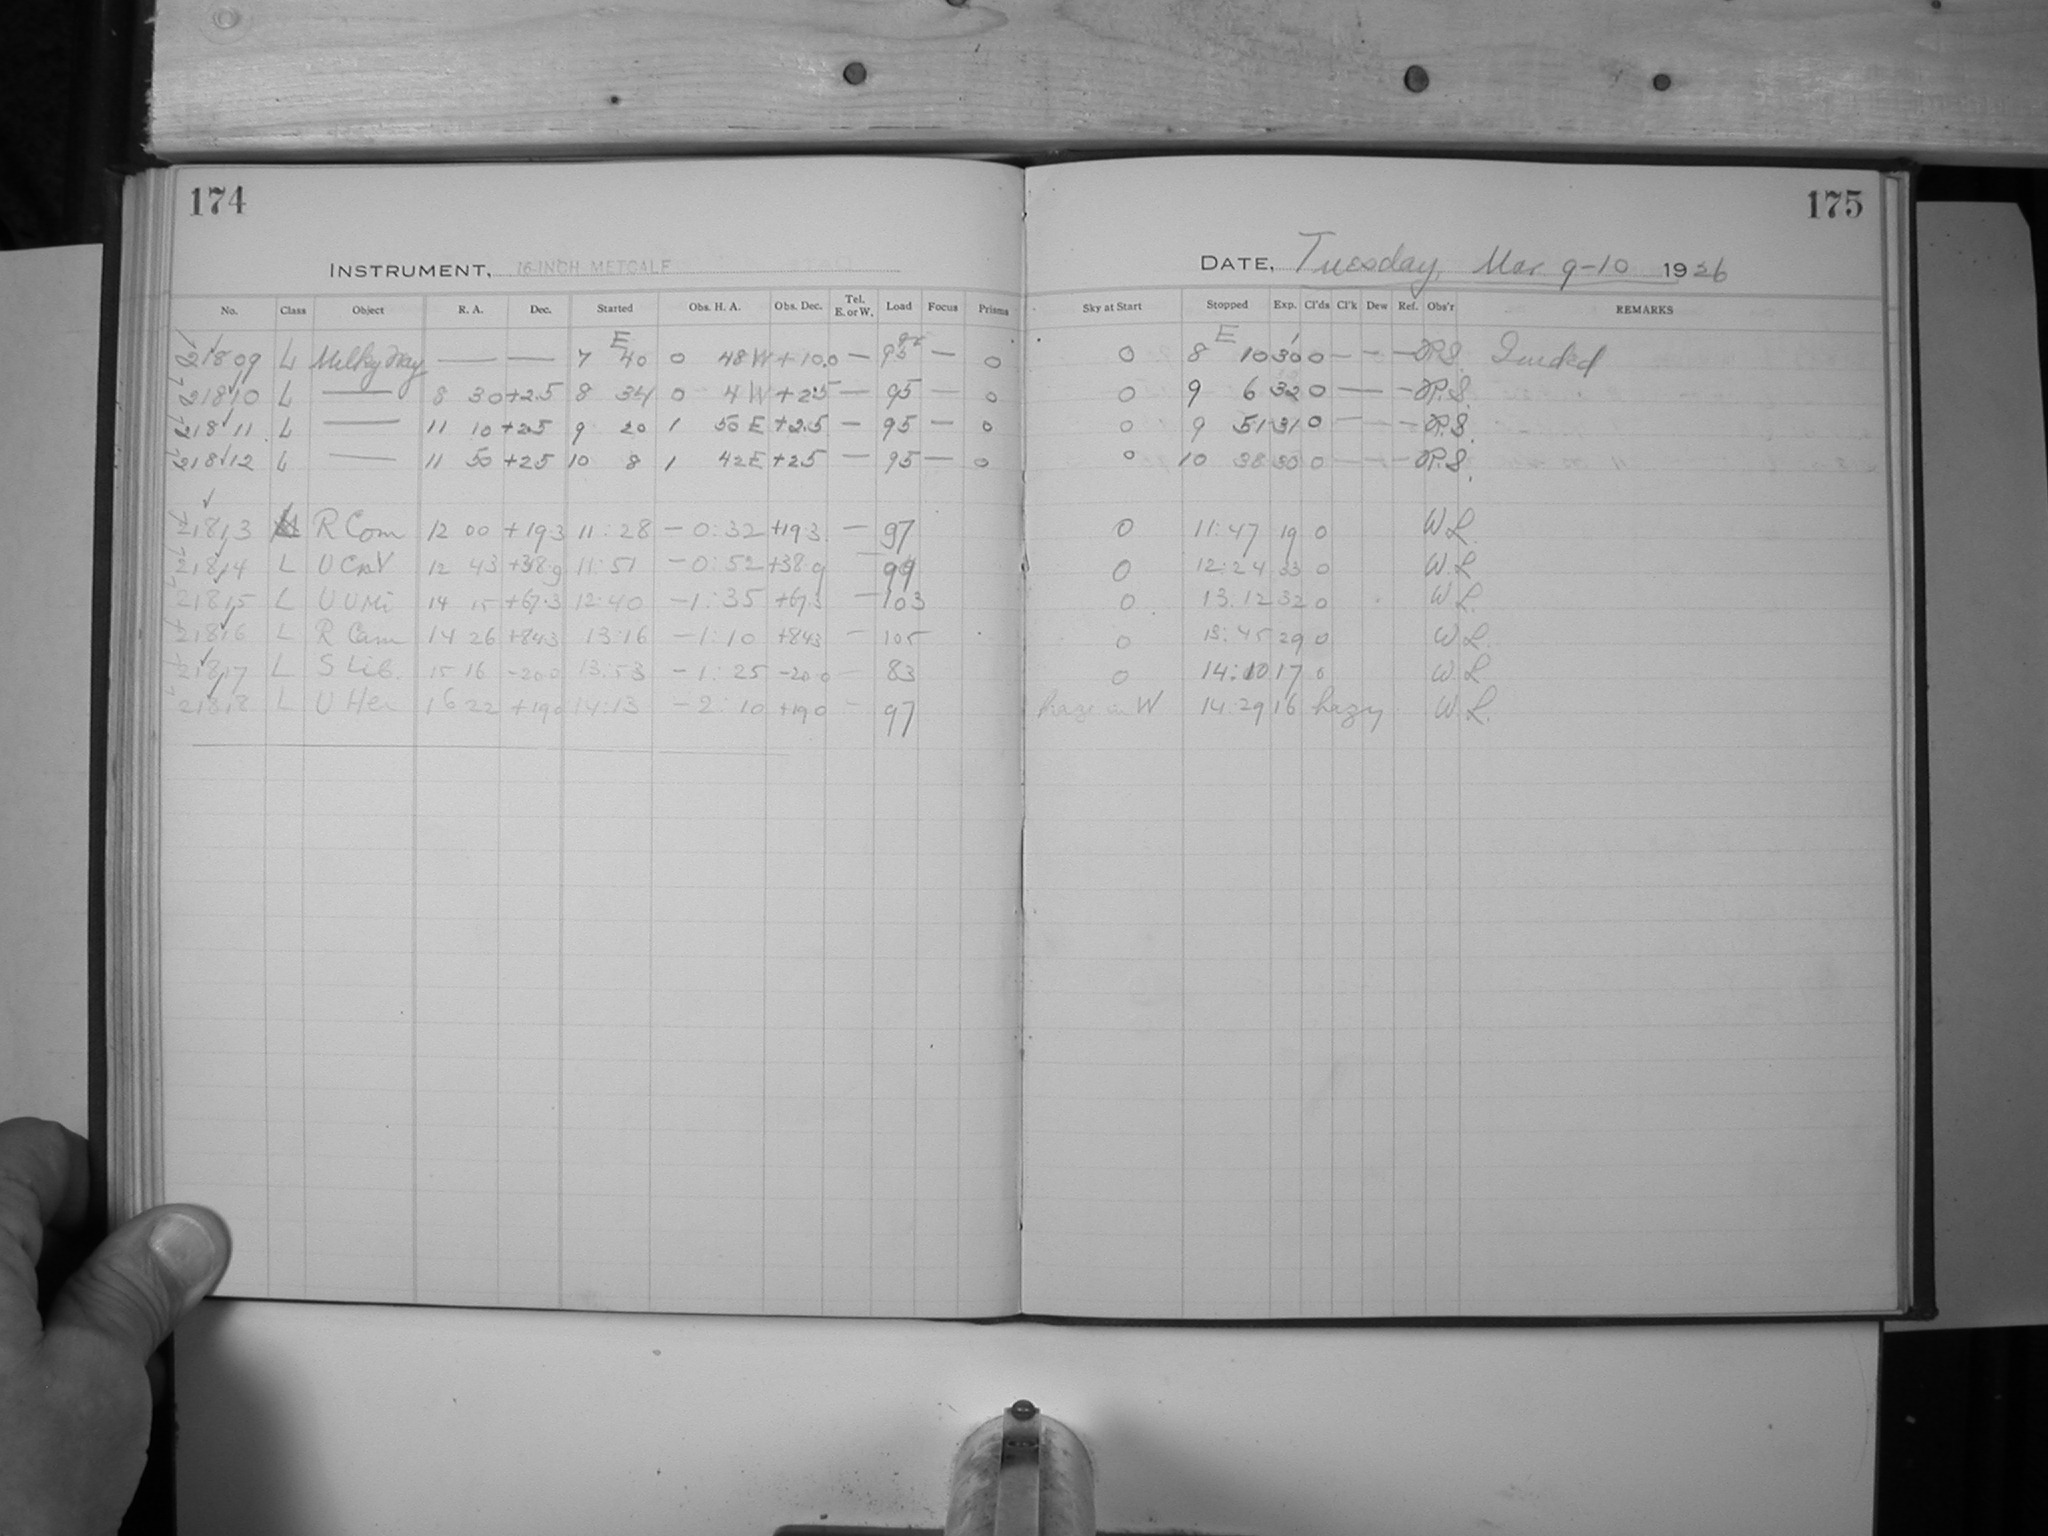 174
175
INSTRUMENT, 16-INCH METCALF
DATE, Tuesday, Mar 9-10 1926
No. Class Object R. A. Dec. Started Obs. H. A. Obs. Dec. Tel. E. or W. Load Focus Prisms Sky at Start Stopped Exp. Cl'ds Cl'k Dew Ref. Obs'r REMARKS
E E
21809 L Milky Way — — 7 40 0 48 W + 10.0 — 95 — 0 0 8 10 30 0 — — —
21810 L — 8 30 +2.5 8 34 0 4 W +2.5 — 95 — 0 0 9 6 32 0 — —
21811 L — 11 10 +2.5 9 20 1 50 E +2.5 — 95 — 0 0 9 51 31 0 — — —
21812 L — 11 50 +2.5 10 8 1 42 E +2.5 — 95 — 0 0 10 38 30 0 — — —
21813 R Com 12 00 +19.3 11:28 -0:32 +19.3 — 97 0 11:47 19 0 W.L.
21814 L U CnV 12 43 +38.9 11:51 -0:52 +38.9 — 99 0 12:24 33 0 W.L
21815 L U UMi 14 15 +67.3 12:40 -1:35 +67.3 — 103 0 13.12 32 0 W L.
21816 L R Cam 14 26 +84.3 13:16 -1:10 +84.3 — 105 0 13:45 29 0 W L.
21817 L S Lib. 15 16 -20.0 13:53 -1:25 -20.0 — 83 0 14:10 17 0 W L
21818 L U Her 16 22 +19.0 14:13 -2:10 +19.0 — 97 haze in W 14:29 16 hazy W.L.